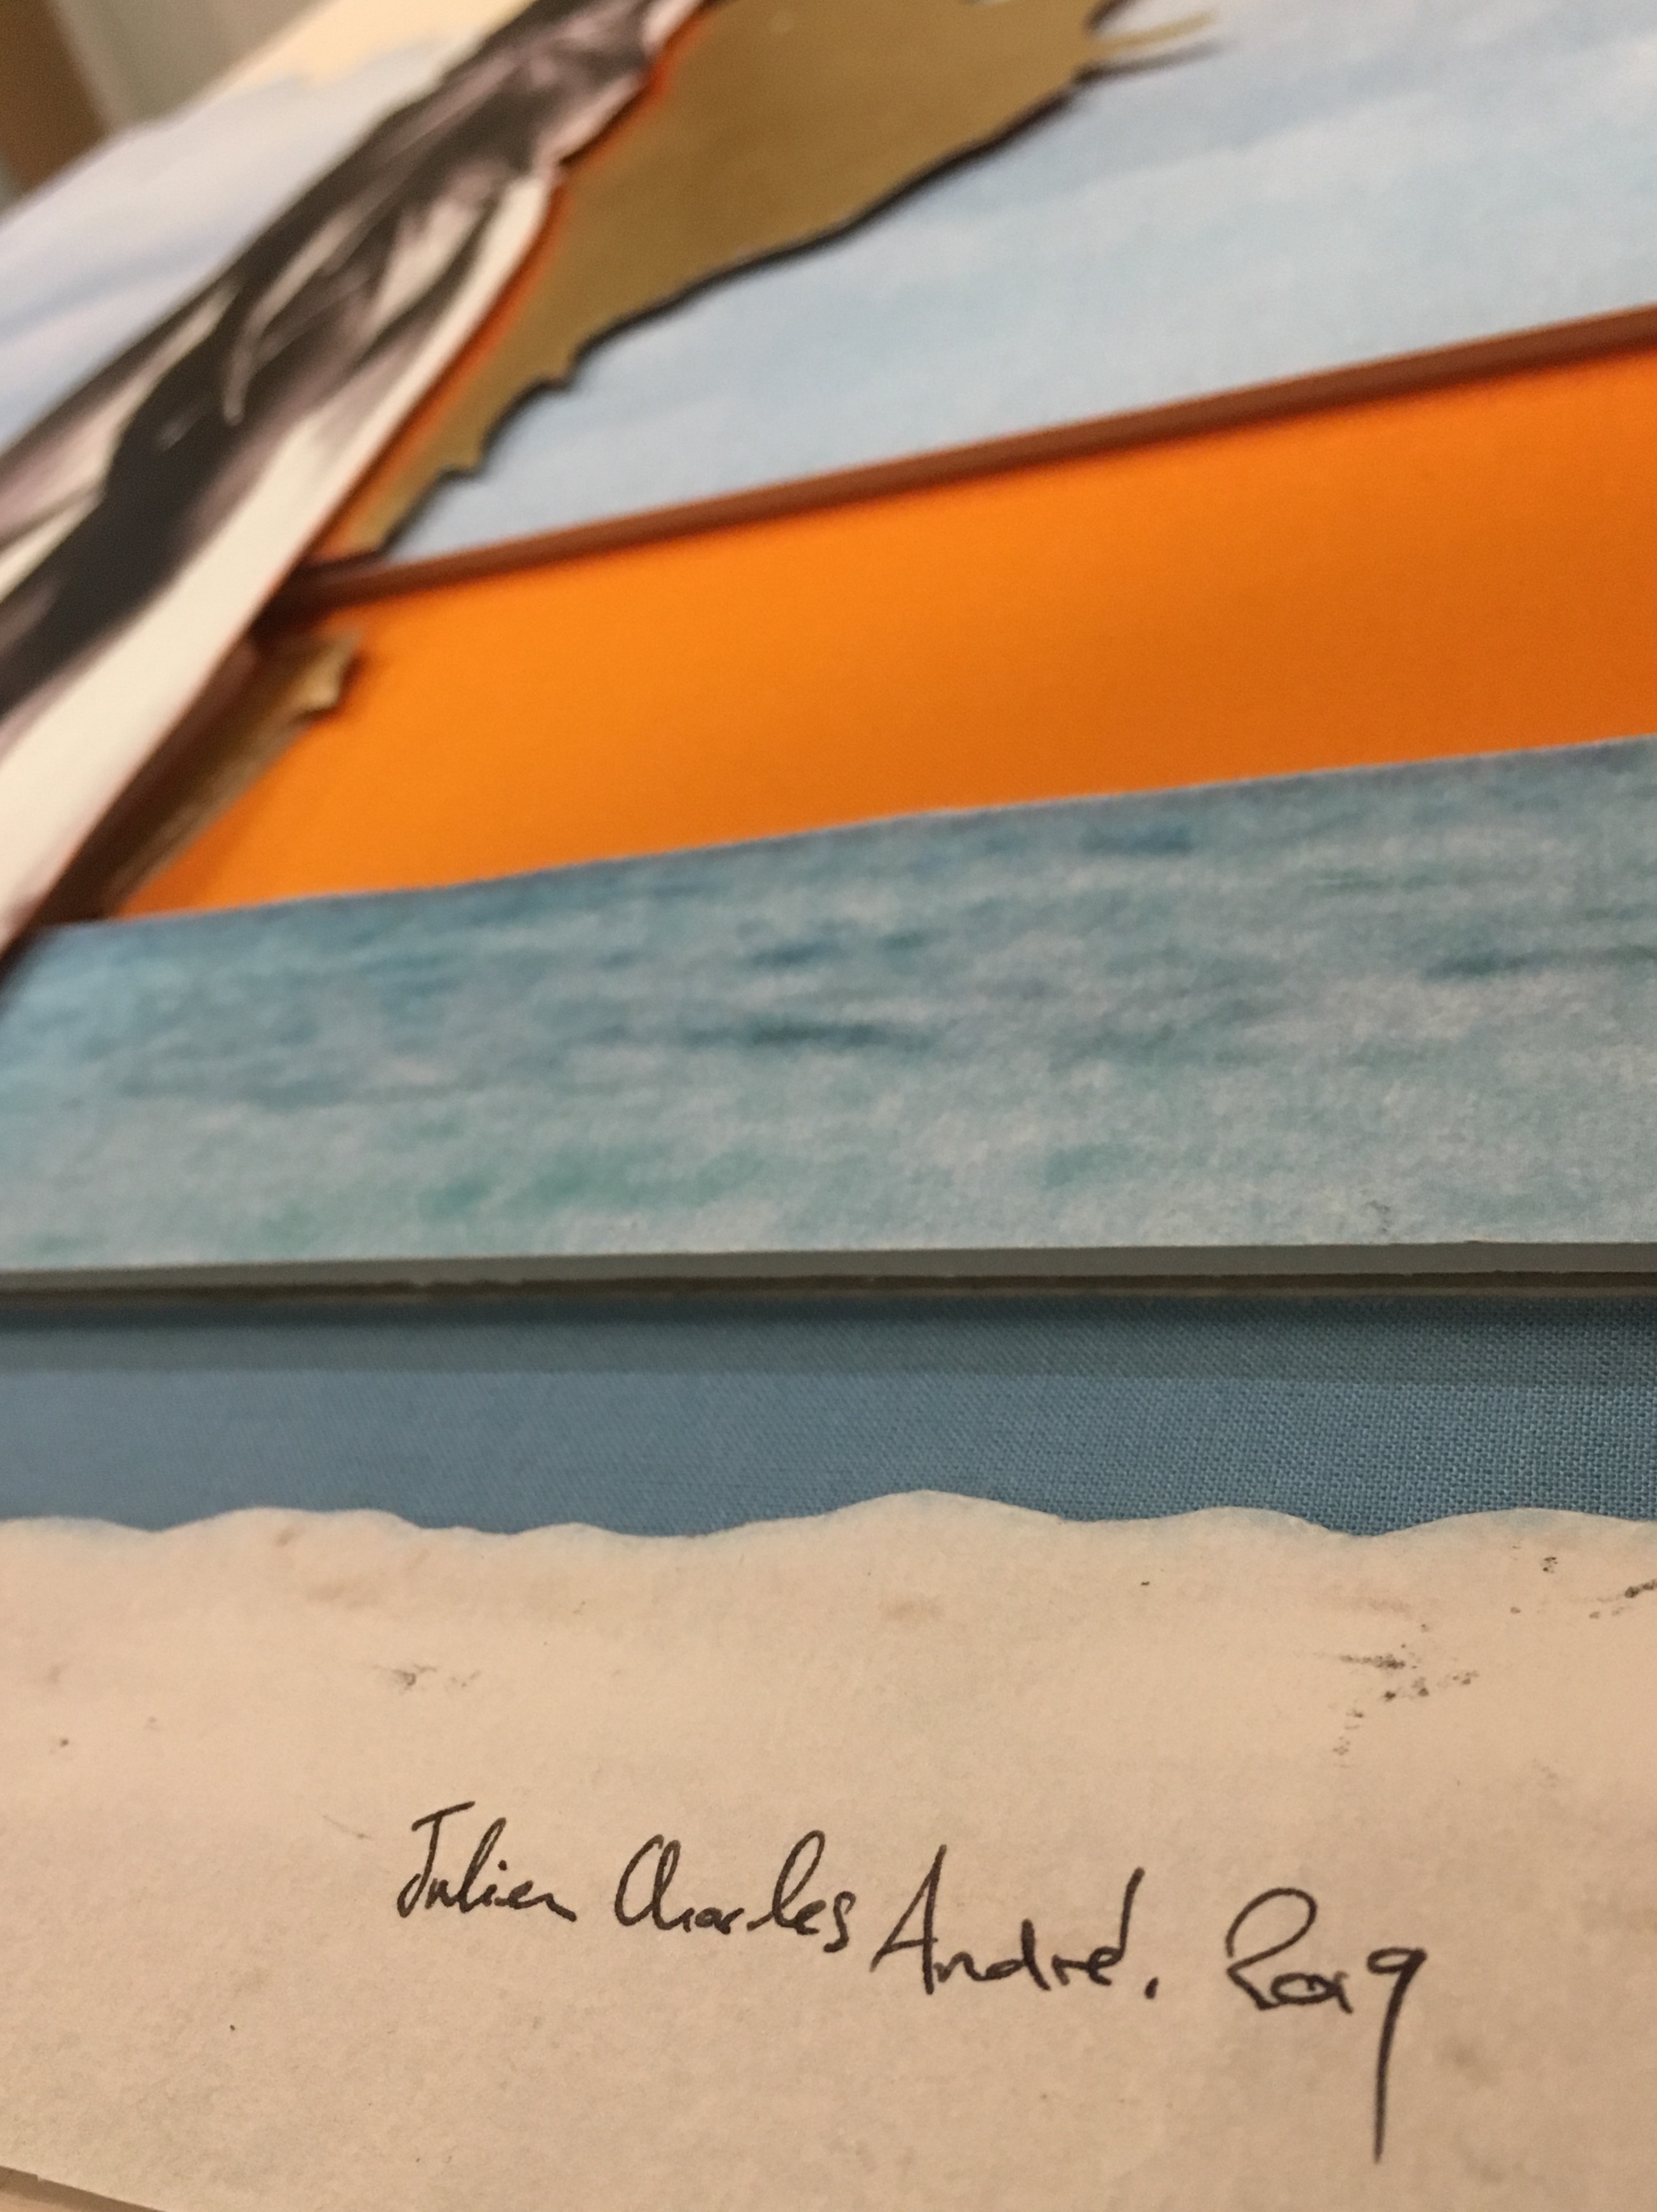 Julien Charles André. Roig